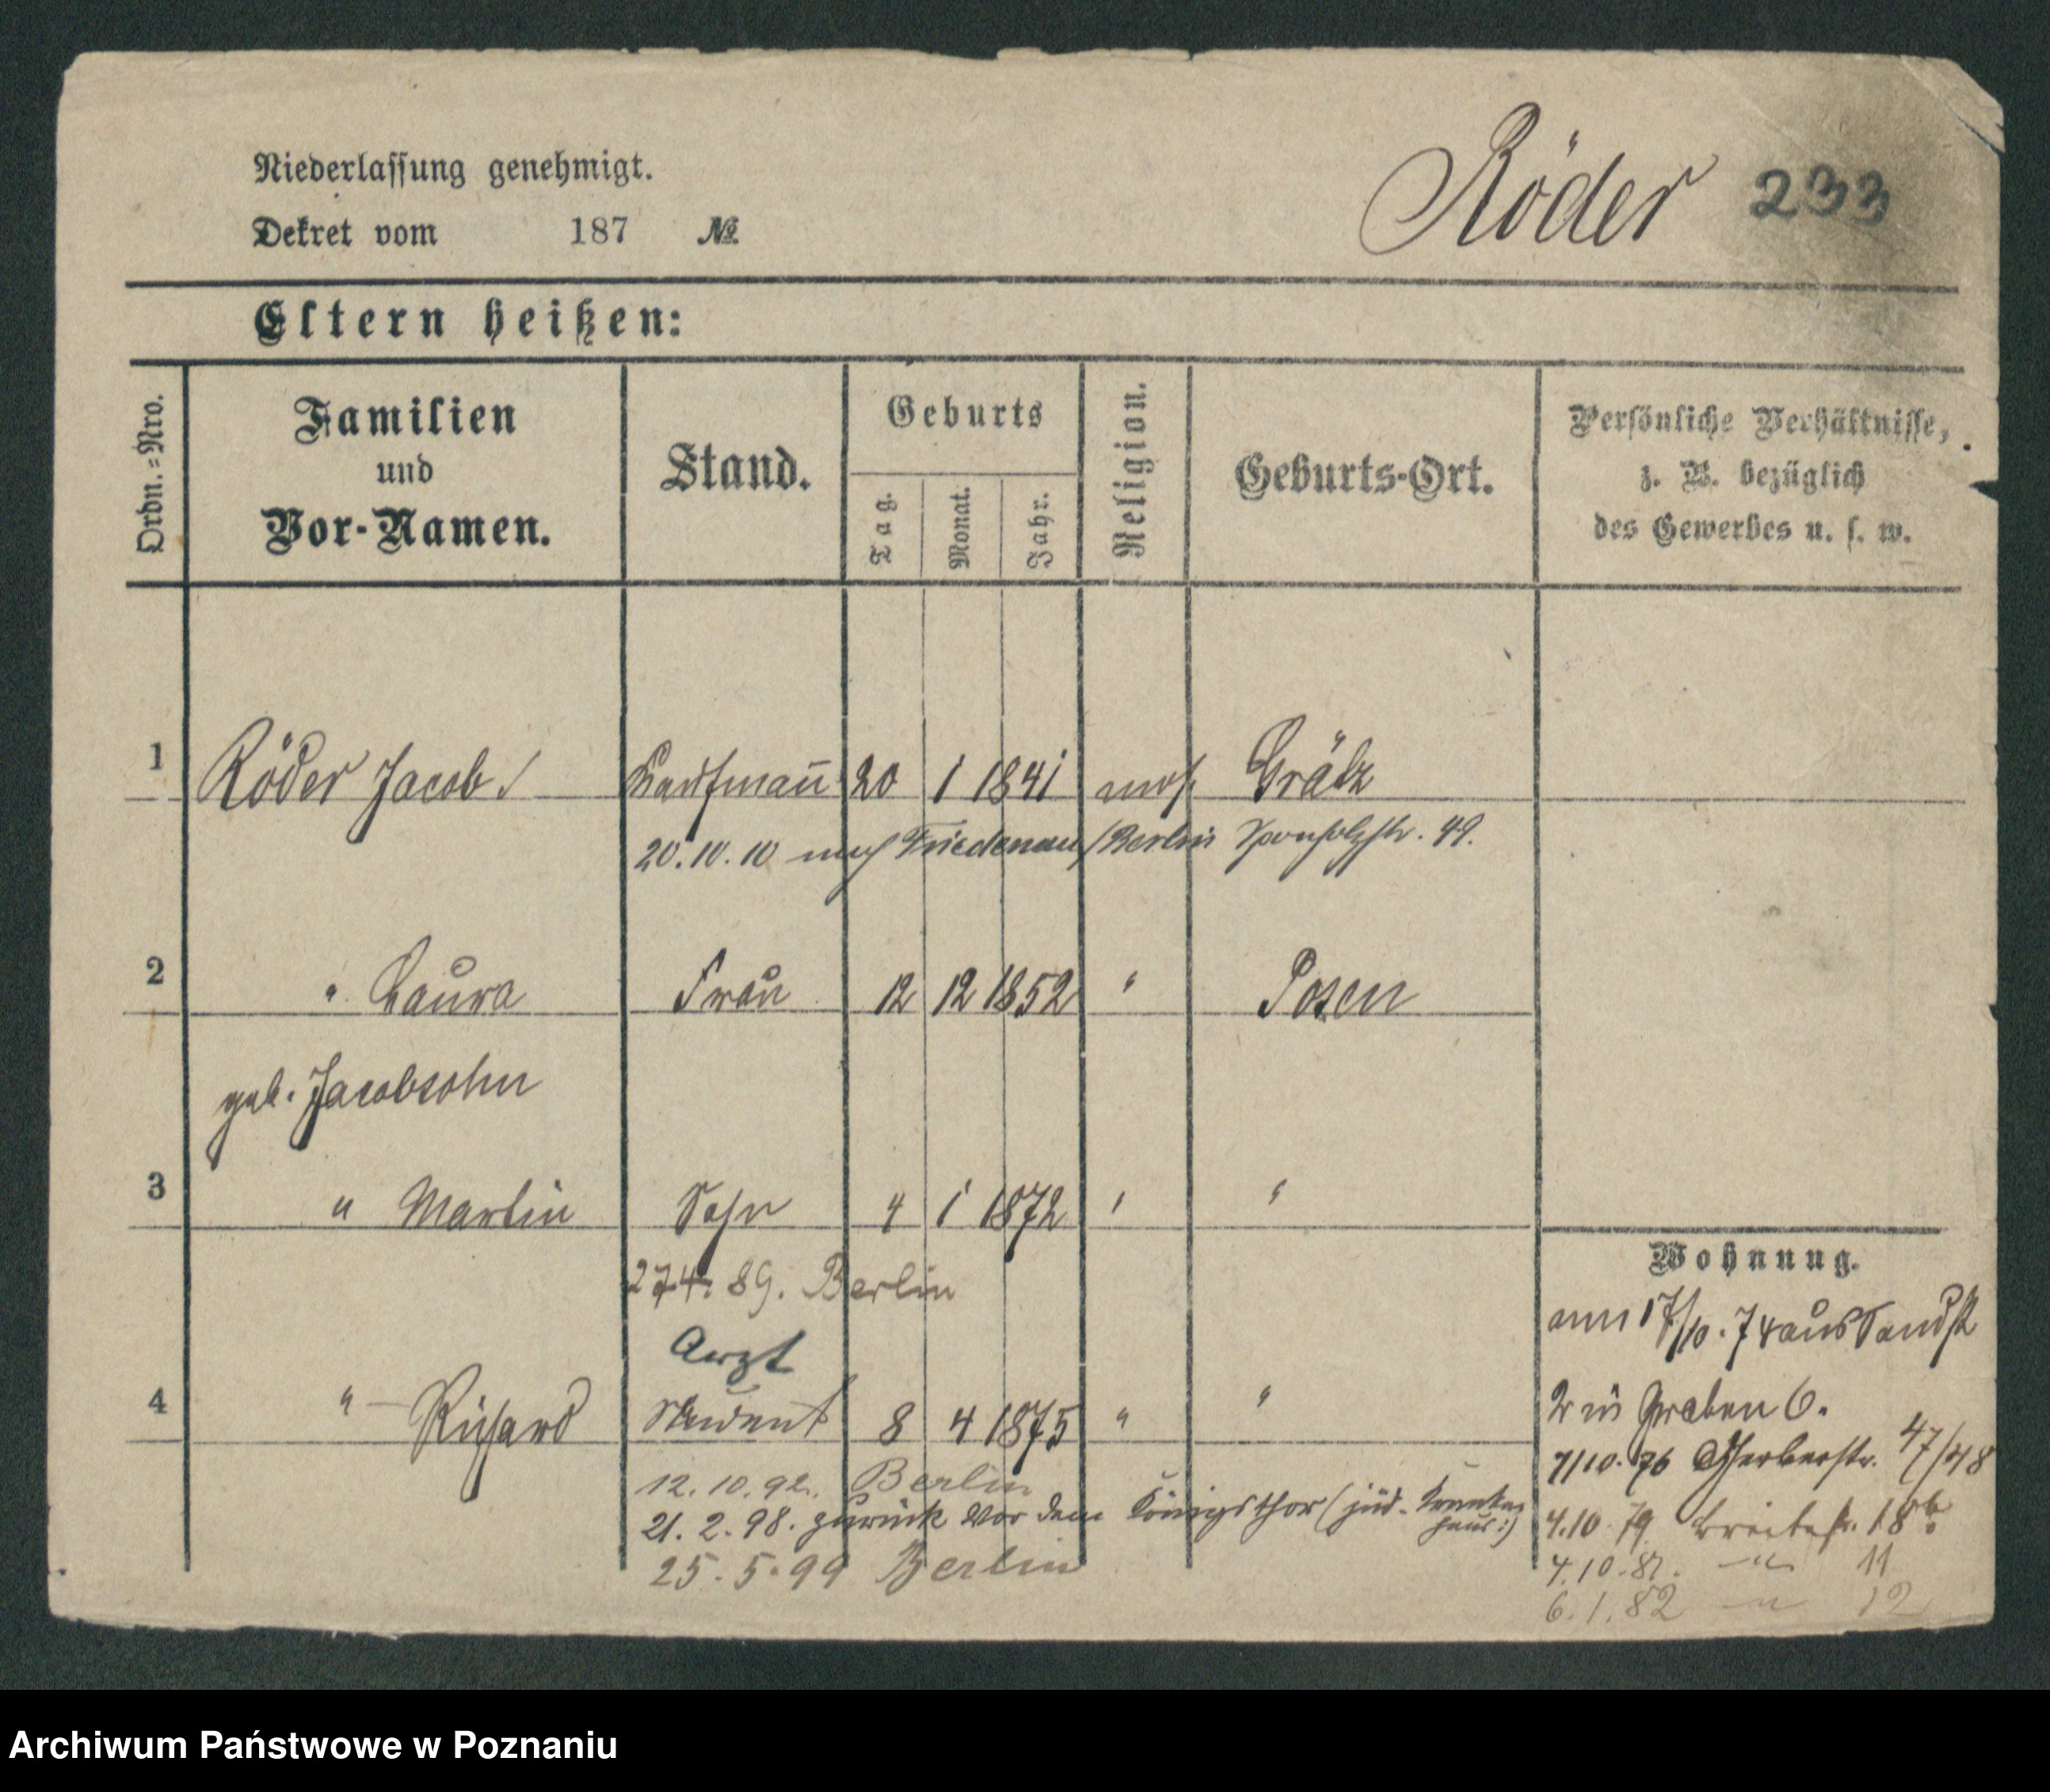 Niederlassung genehmigt.
Röder 233
Dekret vom 187 №
Eltern heißen:
Ordn.=Nro.
Familien
und
Vor-Namen.
Stand.
Geburts
Tag.
Monat.
Jahr.
Religion.
Geburts-Ort.
Persönliche Verhältnisse,
z. B. bezüglich
des Gewerbes u. s. w.
1 Röder Jacob Kaufmann 20 1 1841 mos. Grätz
20.10.10 nach Friedenau/Berlin Sponholzstr. 49.
2 " Laura Frau 12 12 1852 " Posen
geb. Jacobsohn
3 " Martin Sohn 4 1 1872 " "
27.4. 89. Berlin
Arzt
4 " Richard Student 8 4 1875 " "
12.10.92. Berlin
21.2.98. zurück Vor dem Königsthor (jüd. Kranken
haus:)
25.5.99 Berlin
Wohnung.
am 17/10. 74 aus Sandst
2 in Graben 6.
7/10. 76 Gerberstr. 47/48
4.10 79 Breitestr. 18b.
4.10.81. —"— 11
6.1.82 —"— 12
Archiwum Państwowe w Poznaniu